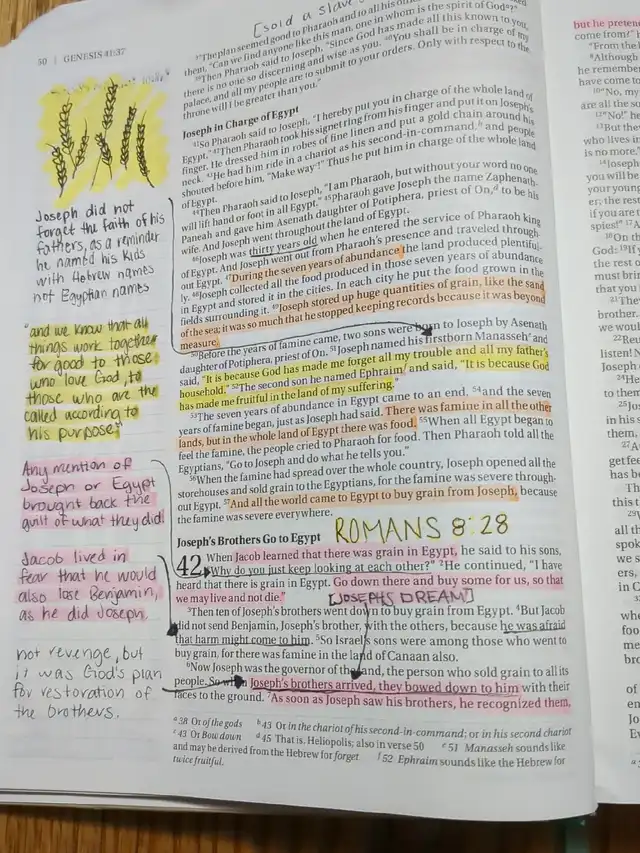 [sold a slave
50 | GENESIS 41:37
37The plan seemed good to Pharaoh and to all his
them, "Can we find anyone like this man, one in whom is the spirit of God?"
39Then Pharaoh said to Joseph, "Since God has made all this known to you,
there is no one so discerning and wise as you. 40You shall be in charge of my
palace, and all my people are to submit to your orders. Only with respect to the
throne will I be greater than you."
Joseph in Charge of Egypt
41So Pharaoh said to Joseph, "I hereby put you in charge of the whole land of
Egypt." 42Then Pharaoh took his signet ring from his finger and put it on Joseph's
finger. He dressed him in robes of fine linen and put a gold chain around his
neck. 43He had him ride in a chariot as his second-in-command, and people
shouted before him, "Make way!" Thus he put him in charge of the whole land
of Egypt.
44Then Pharaoh said to Joseph, "I am Pharaoh, but without your word no one
will lift hand or foot in all Egypt." 45Pharaoh gave Joseph the name Zaphenath-
Paneah and gave him Asenath daughter of Potiphera, priest of On,d to be his
wife. And Joseph went throughout the land of Egypt.
46Joseph was thirty years old when he entered the service of Pharaoh king
of Egypt. And Joseph went out from Pharaoh's presence and traveled through-
out Egypt. 47During the seven years of abundance the land produced plentiful-
ly. 48Joseph collected all the food produced in those seven years of abundance
in Egypt and stored it in the cities. In each city he put the food grown in the
fields surrounding it. 49Joseph stored up huge quantities of grain, like the sand
of the sea; it was so much that he stopped keeping records because it was beyond
measure.
50Before the years of famine came, two sons were born to Joseph by Asenath
daughter of Potiphera, priest of On. 51Joseph named his firstborn Manassehe and
said, "It is because God has made me forget all my trouble and all my father's
household." 52The second son he named Ephraimf and said, "It is because God
has made me fruitful in the land of my suffering."
53The seven years of abundance in Egypt came to an end, 54and the seven
years of famine began, just as Joseph had said. There was famine in all the other
lands, but in the whole land of Egypt there was food. 55When all Egypt began to
feel the famine, the people cried to Pharaoh for food. Then Pharaoh told all the
Egyptians, "Go to Joseph and do what he tells you."
56When the famine had spread over the whole country, Joseph opened all the
storehouses and sold grain to the Egyptians, for the famine was severe through-
out Egypt. 57And all the world came to Egypt to buy grain from Joseph, because
the famine was severe everywhere.
ROMANS 8:28
Joseph's Brothers Go to Egypt
42 When Jacob learned that there was grain in Egypt, he said to his sons,
"Why do you just keep looking at each other?" 2He continued, "I have
heard that there is grain in Egypt. Go down there and buy some for us, so that
we may live and not die."
[JOSEPHS DREAM]
3Then ten of Joseph's brothers went down to buy grain from Egypt. 4But Jacob
did not send Benjamin, Joseph's brother, with the others, because he was afraid
that harm might come to him. 5So Israel's sons were among those who went to
buy grain, for there was famine in the land of Canaan also.
6Now Joseph was the governor of the land, the person who sold grain to all its
people. So when Joseph's brothers arrived, they bowed down to him with their
faces to the ground. 7As soon as Joseph saw his brothers, he recognized them,
a 38 Or of the gods b 43 Or in the chariot of his second-in-command; or in his second chariot
c 43 Or Bow down d 45 That is, Heliopolis; also in verse 50 e 51 Manasseh sounds like
and may be derived from the Hebrew for forget f 52 Ephraim sounds like the Hebrew for
twice fruitful.
Joseph did not
forget the faith of his
fathers, as a reminder
he named his kids
with Hebrew names
not Egyptian names
"and we know that all
things work together
for good to those
who love God, to
those who are the
called according to
his purpose"
Any mention of
Joseph or Egypt
brought back the
guilt of what they did!
Jacob lived in
fear that he would
also lose Benjamin,
as he did Joseph.
not revenge, but
it was God's plan
for restoration of
the brothers.
but he preten
come from?"
"From the l
8Although
he remember
have come to
10"No, my
are all the so
12"No!" he
13But the
who lives in
is no more."
14Joseph
you will be
your young
er; the rest
if you are t
spies!" 17A
18On th
God: 19If y
the rest o
must brin
that you
21The
brother.
we woul
22Reu
listen! N
Joseph
24He
to them
25Jo
in his s
them,
27A
get fee
has be
Th
this t
29
all th
spok
we s
ers,
in C
whe
foo
Mo
bro
of
en
Jo
Ev